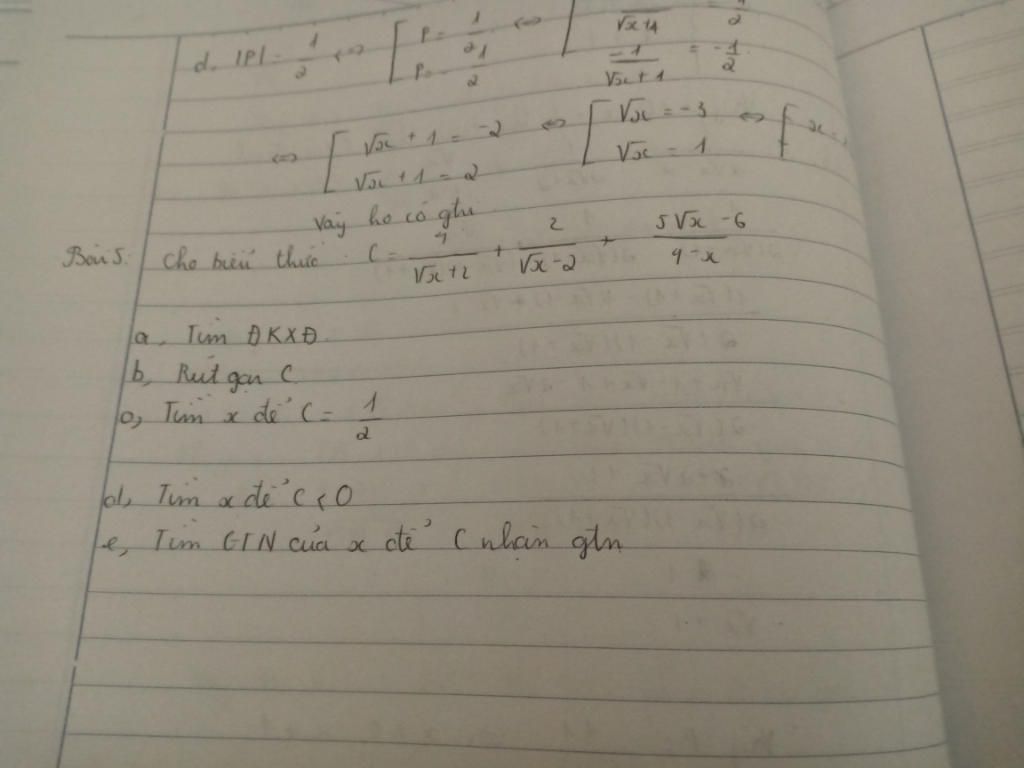 d. |P| = 1/2 <=> [ P = 1/2 ; P = -1/2 <=> [ /√x+1 = /2 ; -1/√x+1 = -1/2
<=> [ √x + 1 = -2 ; √x + 1 = 2 <=> [ √x = -3 ; √x = 1 <=> [ x =
Vậy ko có gtri
Bài 5: Cho biểu thức C = 1/√x+2 + 2/√x-2 + 5√x-6/4-x
a, Tìm ĐKXĐ
b, Rút gọn C
c, Tìm x để C = 1/2
d, Tìm x để C < 0
e, Tìm GTN của x để C nhận gtn